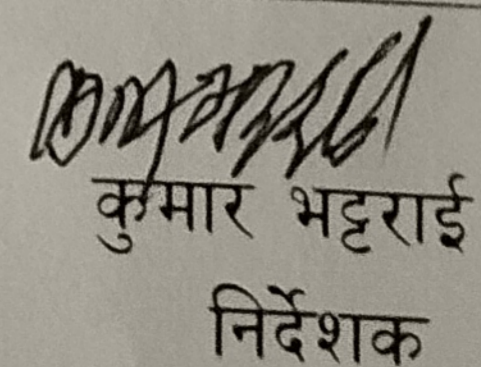 कुमार भट्टराई
निर्देशक